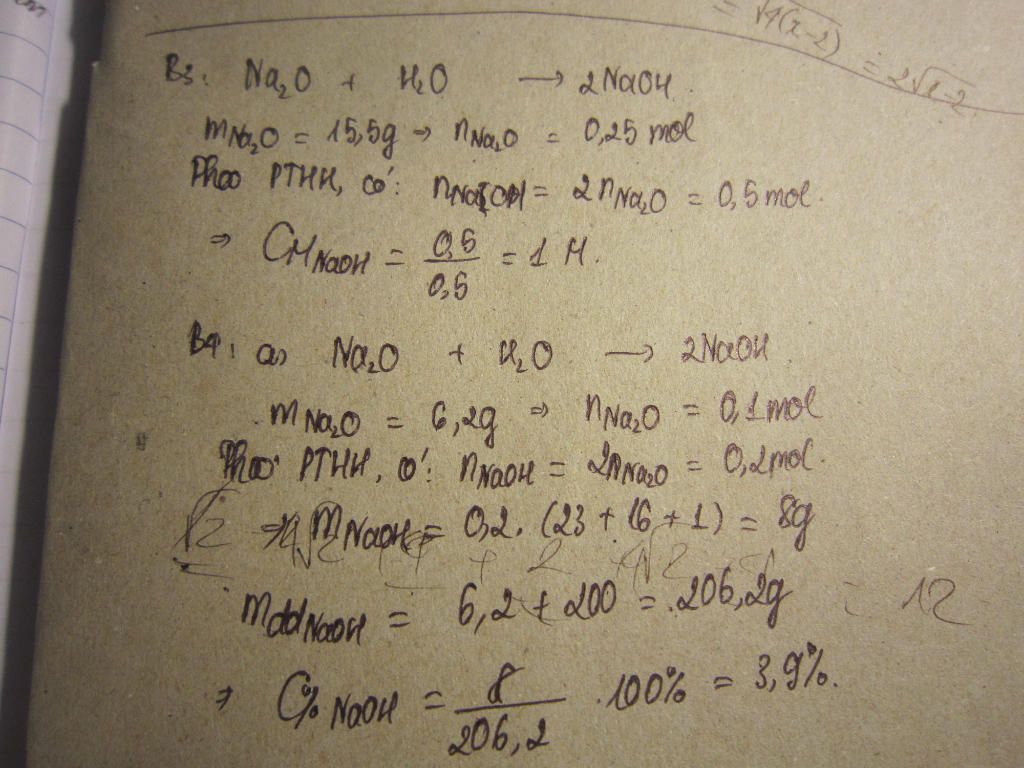 = √4(x-2)
= 2√x-2
B3: Na₂O + H₂O → 2NaOH
mNa₂O = 15,5g → nNa₂O = 0,25 mol
Theo PTHH, có: nNaOH = 2nNa₂O = 0,5 mol.
⇒ CM NaOH = 0,5/0,5 = 1 M.
B4: a) Na₂O + H₂O → 2NaOH
mNa₂O = 6,2g ⇒ nNa₂O = 0,1 mol
Theo PTHH, có: nNaOH = 2nNa₂O = 0,2 mol.
⇒ mNaOH = 0,2.(23 + 16 + 1) = 8g
mdd NaOH = 6,2 + 200 = 206,2g = 12
⇒ C% NaOH = 8/206,2 .100% = 3,9%.